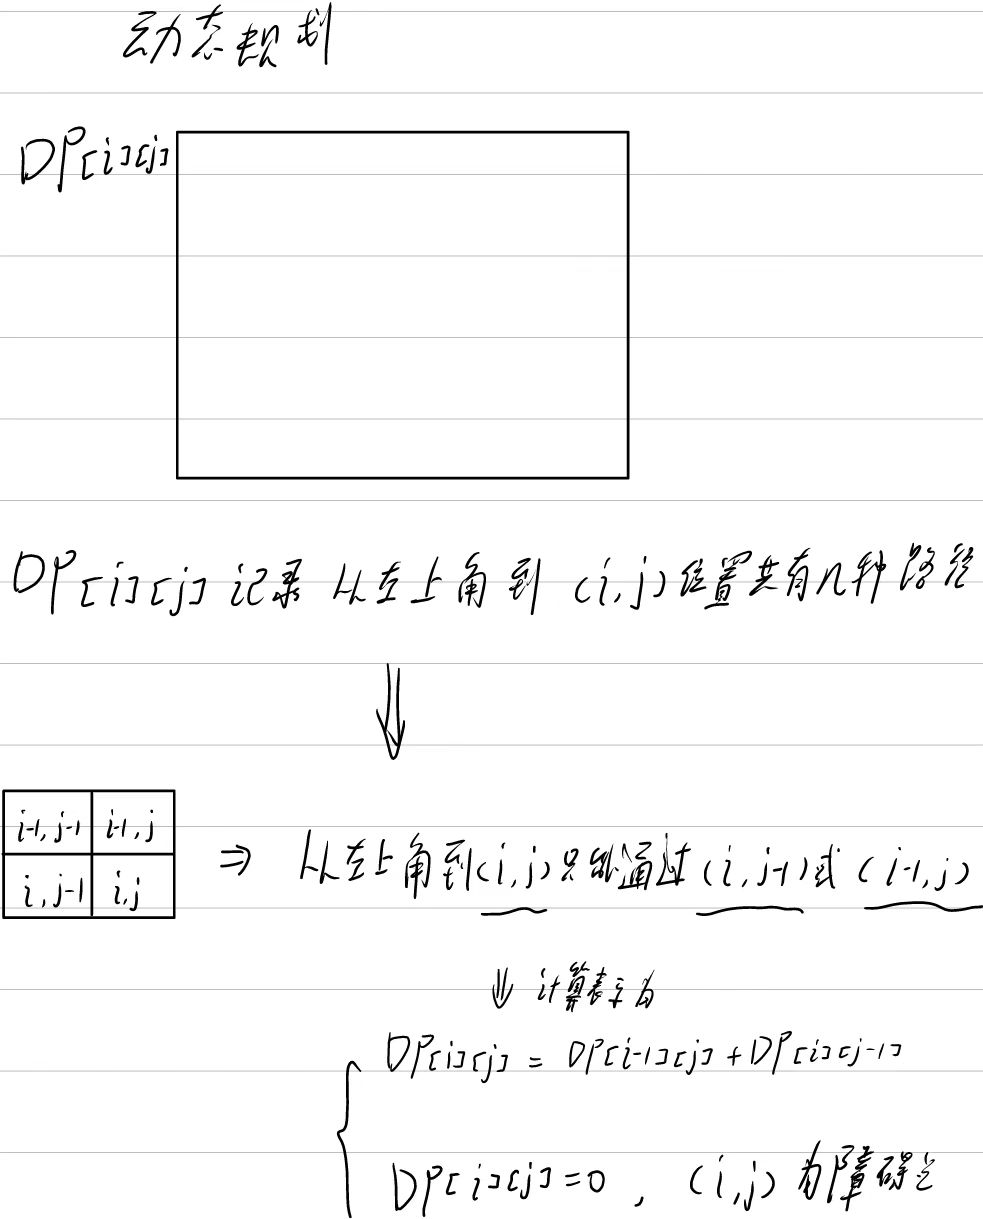 动态规划
DP[i][j]
DP[i][j] 记录 从左上角到 (i,j)位置共有几种路径
i-1, j-1 i-1, j
i, j-1 i,j
⇒ 从左上角到(i,j)只能通过(i,j-1)或(i-1,j)
⇓ 计算表示为
DP[i][j] = DP[i-1][j] + DP[i][j-1]
DP[i][j]=0 , (i,j) 为障碍